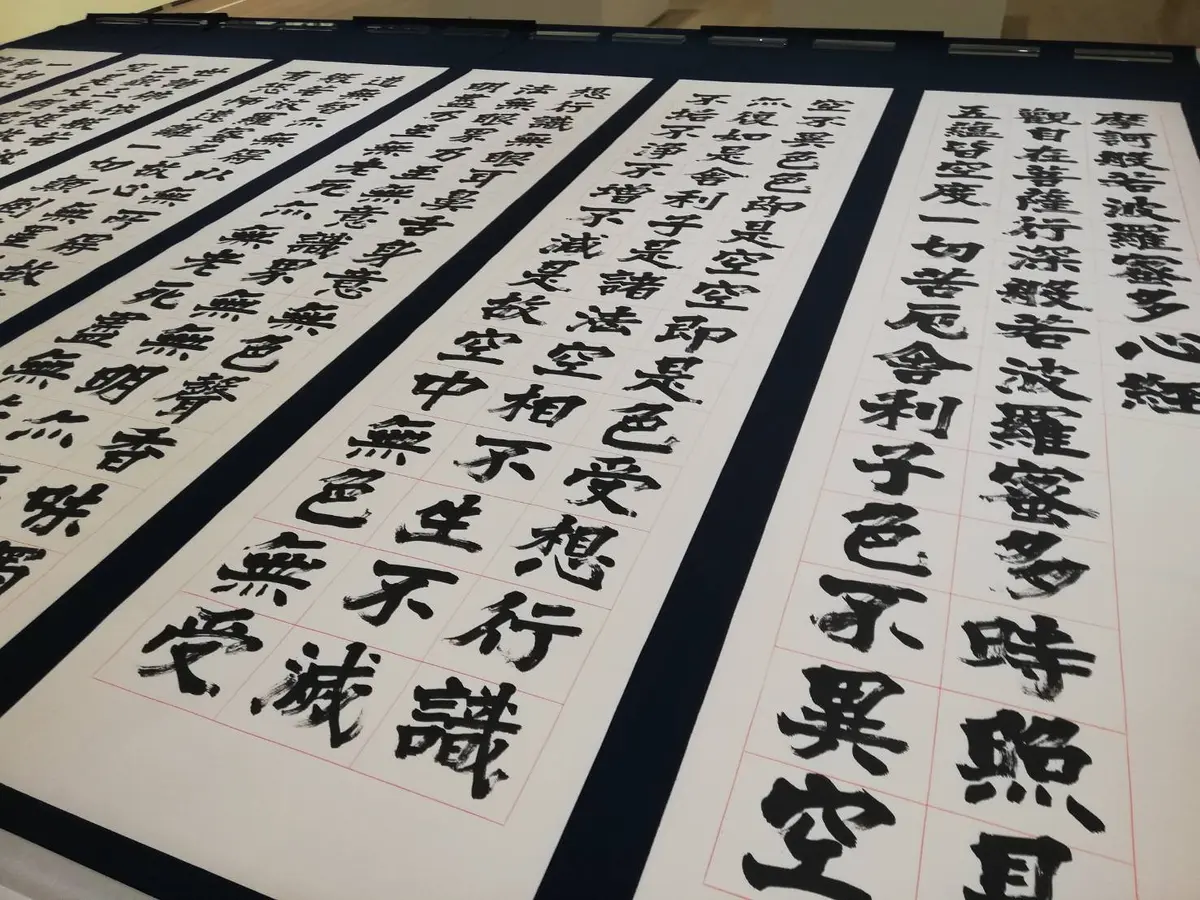 摩訶般若波羅蜜多心經
觀自在菩薩行深般若波羅蜜多時照見
五蘊皆空度一切苦厄舍利子色不異空
空不異色色即是空空即是色受想行識
亦復如是舍利子是諸法空相不生不滅
不垢不淨不增不減是故空中無色無受
想行識無眼耳鼻舌身意無色聲香味觸
法無眼界乃至無意識界無無明亦
明盡乃至無老死亦無老死盡無
無智亦無得以無所得故
有恐怖遠離一切顛倒